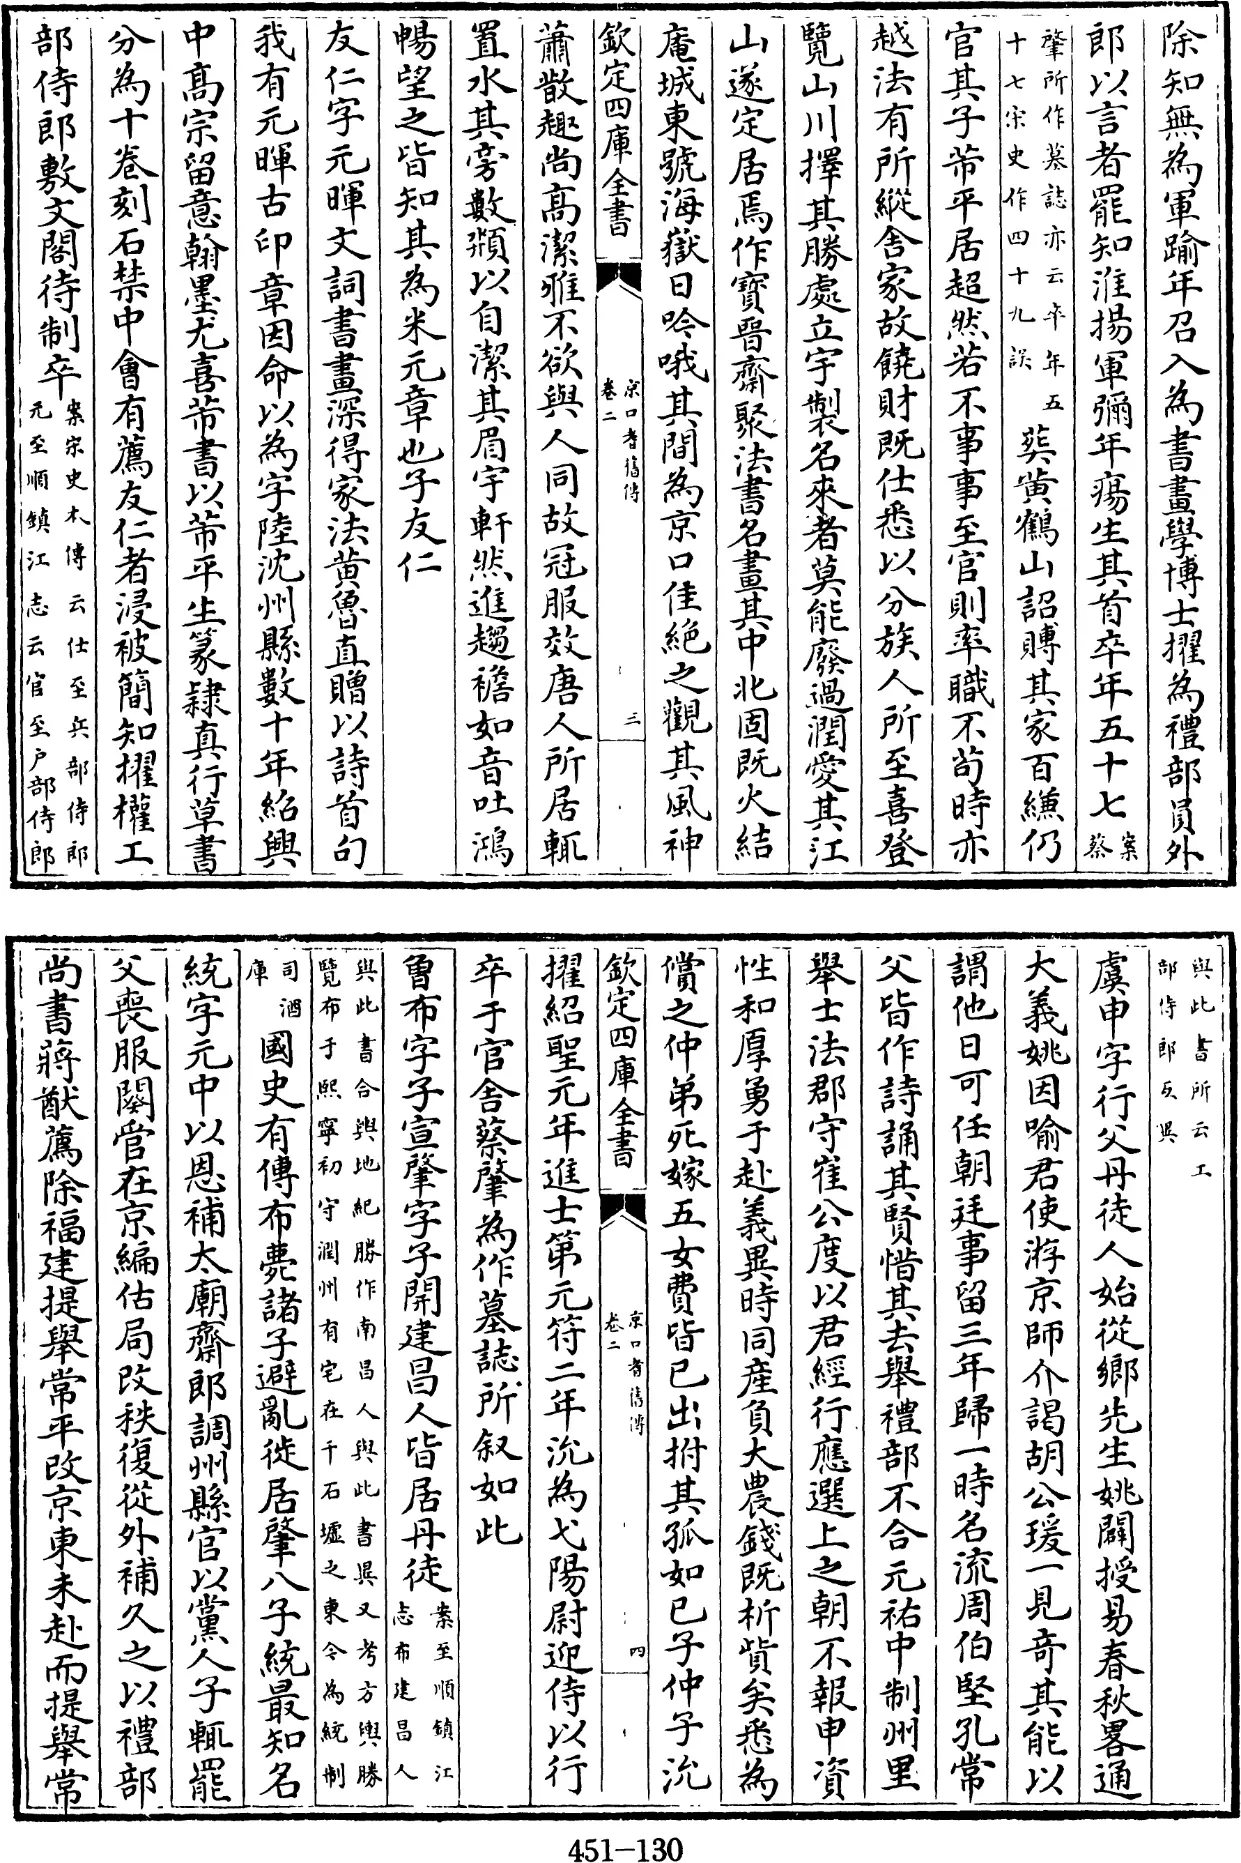 除知無為軍踰年召入為書畫學博士擢為禮部員外
郎以言者罷知淮揚軍彌年瘍生其首卒年五十七案蔡
肇所作墓誌亦云卒年五
十七宋史作四十九誤
葬黄鶴山詔賻其家百縑仍
官其子芾平居超然若不事事至官則率職不茍時亦
越法有所縱舍家故饒財既仕悉以分族人所至喜登
覽山川擇其勝處立宇製名來者莫能廢過潤愛其江
山遂定居焉作寶晉齋聚法書名畫其中北固既火結
庵城東號海嶽日吟哦其間為京口佳絶之觀其風神
欽定四庫全書
京口耆舊傳
卷二
三
蕭散趣尚高潔雅不欲與人同故冠服效唐人所居輒
置水其旁數頮以自潔其眉宇軒然進趨襜如音吐鴻
暢望之皆知其為米元章也子友仁
友仁字元暉文詞書畫深得家法黄魯直贈以詩首句
我有元暉古印章因命以為字陸沈州縣數十年紹興
中高宗留意翰墨尤喜芾書以芾平生篆隸真行草書
分為十卷刻石禁中會有薦友仁者浸被簡知擢權工
部侍郎敷文閣待制卒
案宋史本傳云仕至兵部侍郎
元至順鎮江志云官至户部侍郎
與此書所云工
部侍郎互異
虞申字行父丹徒人始從鄉先生姚闢授易春秋畧通
大義姚因喻君使游京師介謁胡公瑗一見奇其能以
謂他日可任朝廷事留三年歸一時名流周伯堅孔常
父皆作詩誦其賢惜其去舉禮部不合元祐中制州里
舉士法郡守崔公度以君經行應選上之朝不報申資
性和厚勇于赴義異時同産負大農錢既析貲矣悉為
償之仲弟死嫁五女費皆已出拊其孤如已子仲子沇
欽定四庫全書
京口耆舊傳
卷二
四
擢紹聖元年進士第元符二年沇為弋陽尉迎侍以行
卒于官舍蔡肇為作墓誌所叙如此
曾布字子宣肇字子開建昌人皆居丹徒
案至順鎮江
志布建昌人
與此書合輿地紀勝作南昌人與此書異又考方輿勝
覽布于熙寧初守潤州有宅在千石墟之東今為統制
司酒
庫
國史有傳布薨諸子避亂徙居肇八子統最知名
統字元中以恩補太廟齋郎調州縣官以黨人子輒罷
父喪服闋嘗在京編估局改秩復從外補久之以禮部
尚書蔣猷薦除福建提舉常平改京東未赴而提舉常
451-130